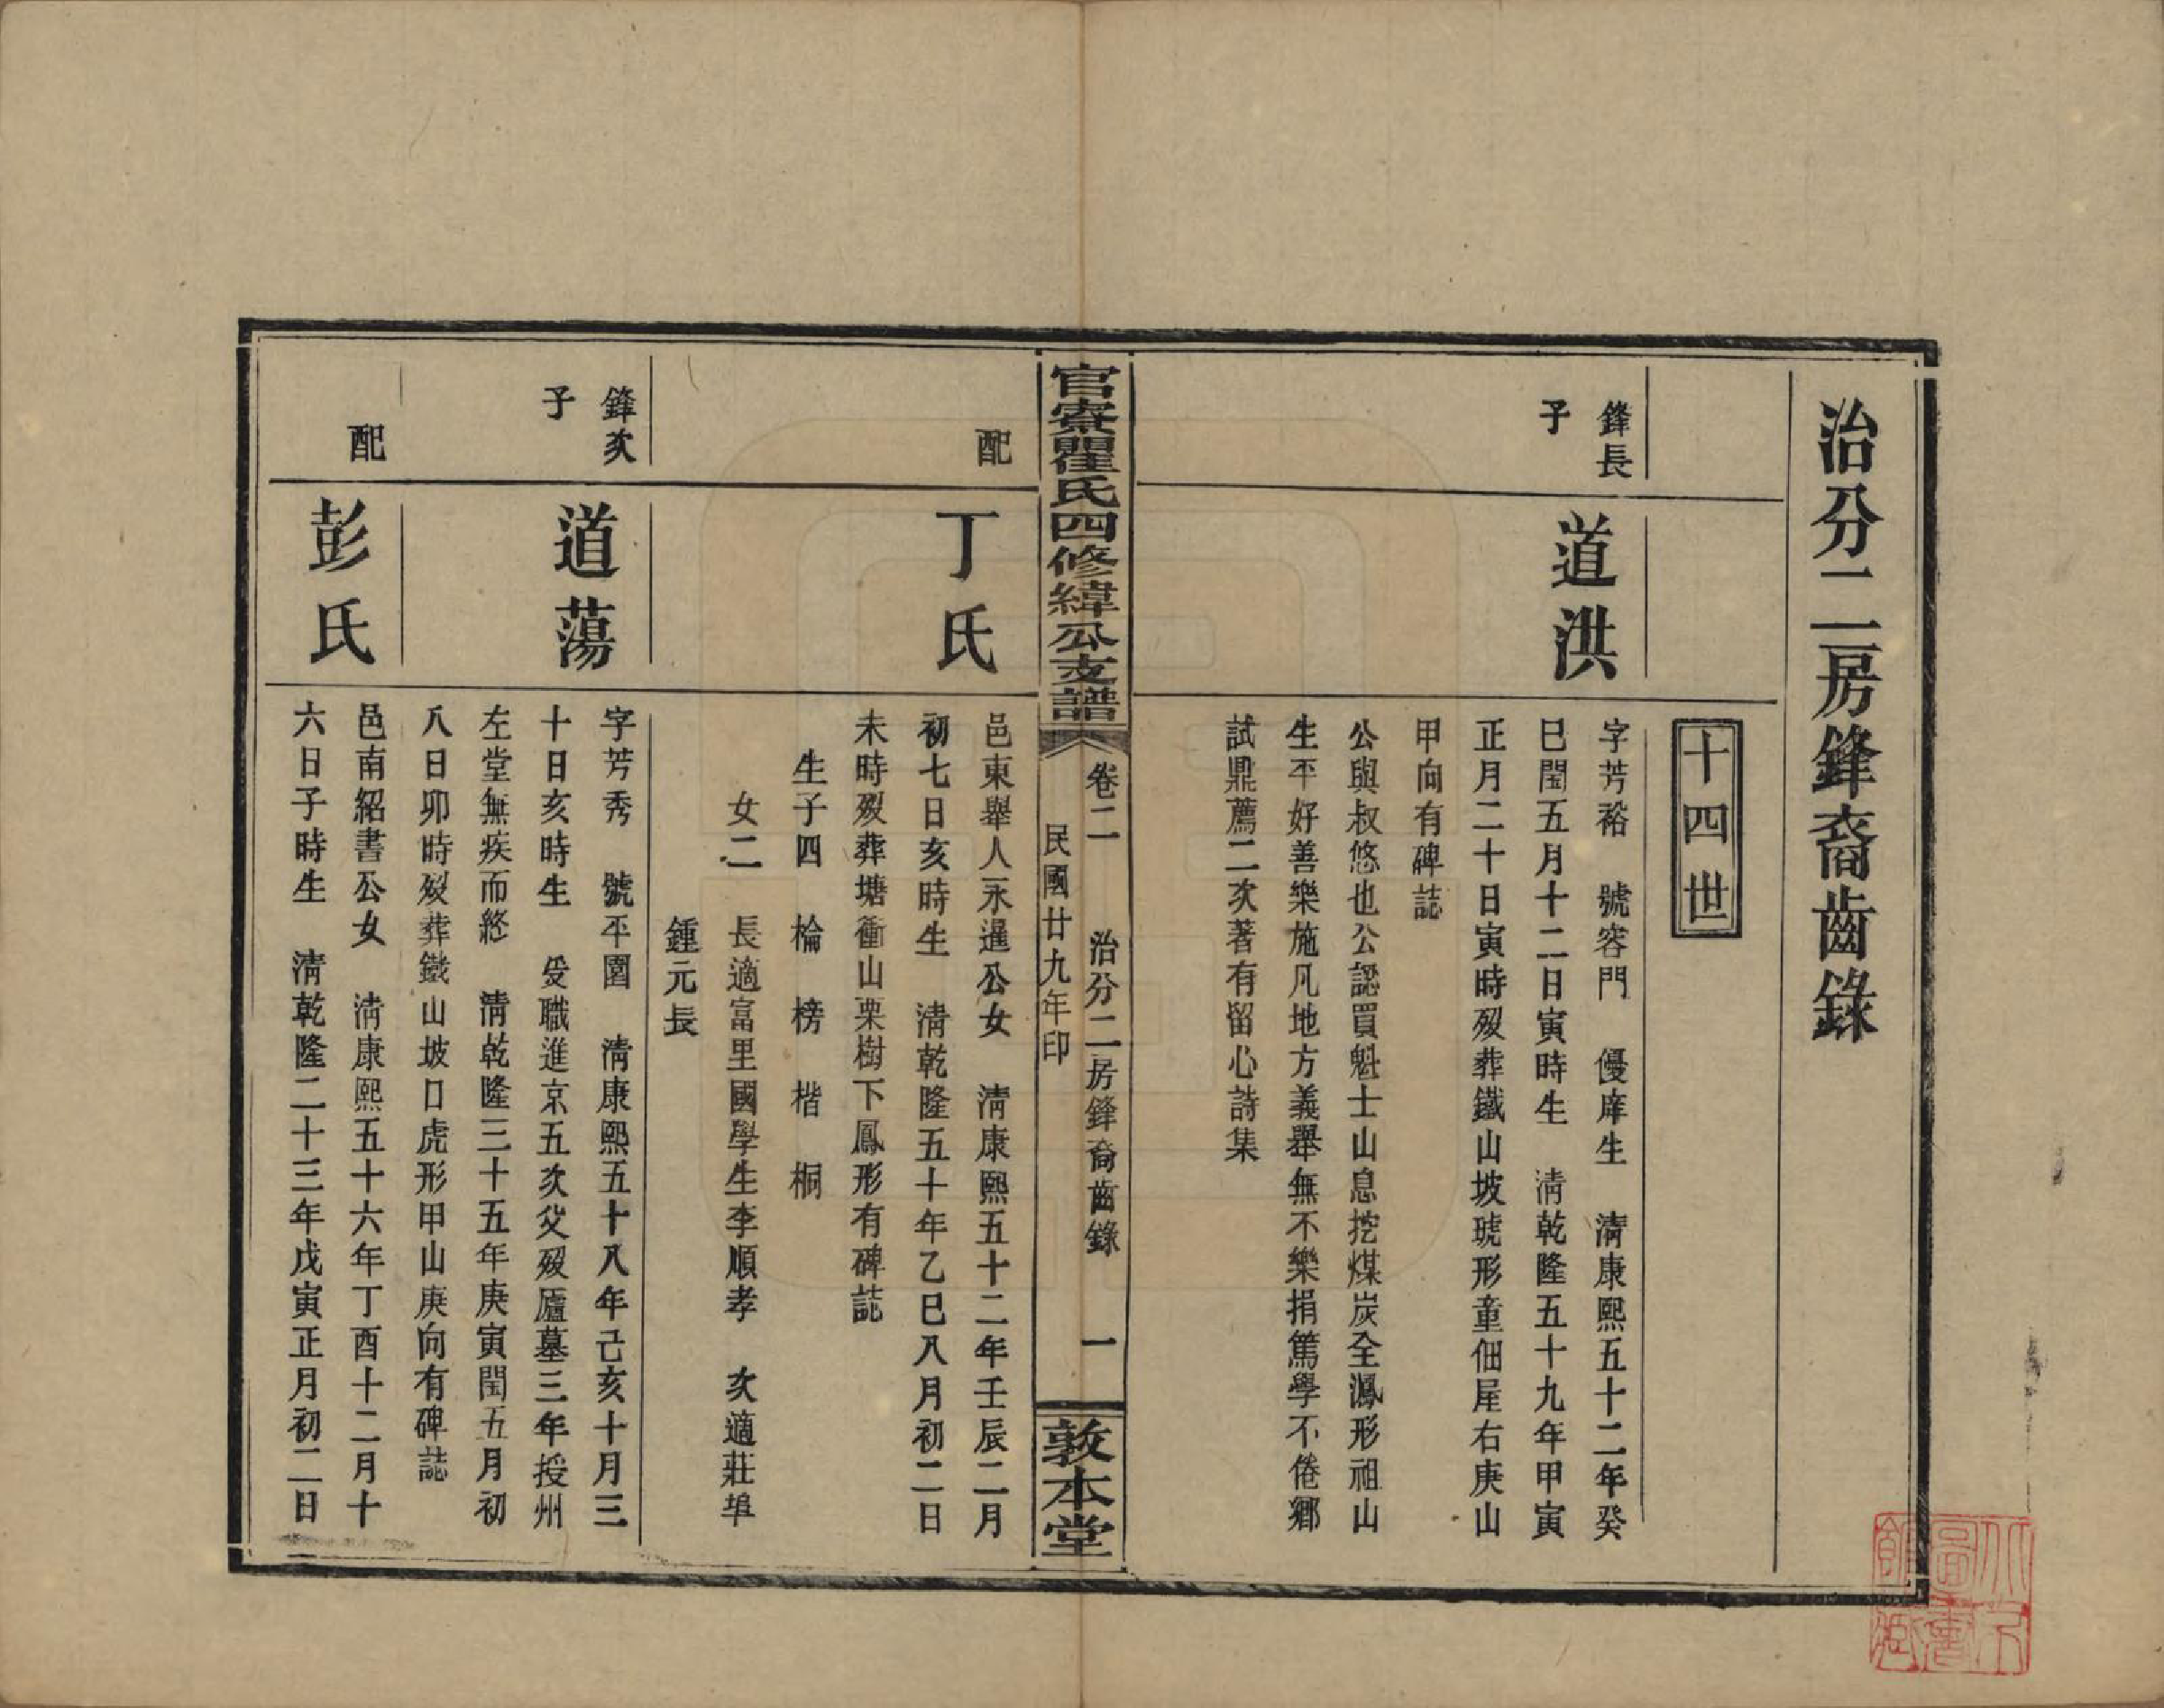 治分二房鋒裔齒錄
十四世
鋒長
子
道洪
字芳裕 號容門 優庠生 清康熙五十二年癸
巳閏五月十二日寅時生 清乾隆五十九年甲寅
正月二十日寅時歿葬鐵山坡琥形童佃屋右庚山
甲向有碑誌
公與叔悠也公認買魁士山息挖煤炭全鳳形祖山
生平好善樂施凡地方義舉無不樂捐篤學不倦鄉
試鼎薦二次著有留心詩集
官寮瞿氏四修緯公支譜
卷二 治分二房鋒裔齒錄 一
民國廿九年印
敦本堂
配
丁氏
邑東舉人永暹公女 清康熙五十二年壬辰二月
初七日亥時生 清乾隆五十年乙巳八月初二日
未時歿葬塘衝山栗樹下鳳形有碑誌
生子四 棆 榜 楷 桐
女二 長適富里國學生李順孝 次適莊埠
鍾元長
鋒次
子
道蕩
字芳秀 號平園 清康熙五十八年己亥十月三
十日亥時生 受職進京五次父歿廬墓三年授州
左堂無疾而終 清乾隆三十五年庚寅閏五月初
八日卯時歿葬鐵山坡口虎形甲山庚向有碑誌
配
彭氏
邑南紹書公女 清康熙五十六年丁酉十二月十
六日子時生 清乾隆二十三年戊寅正月初二日